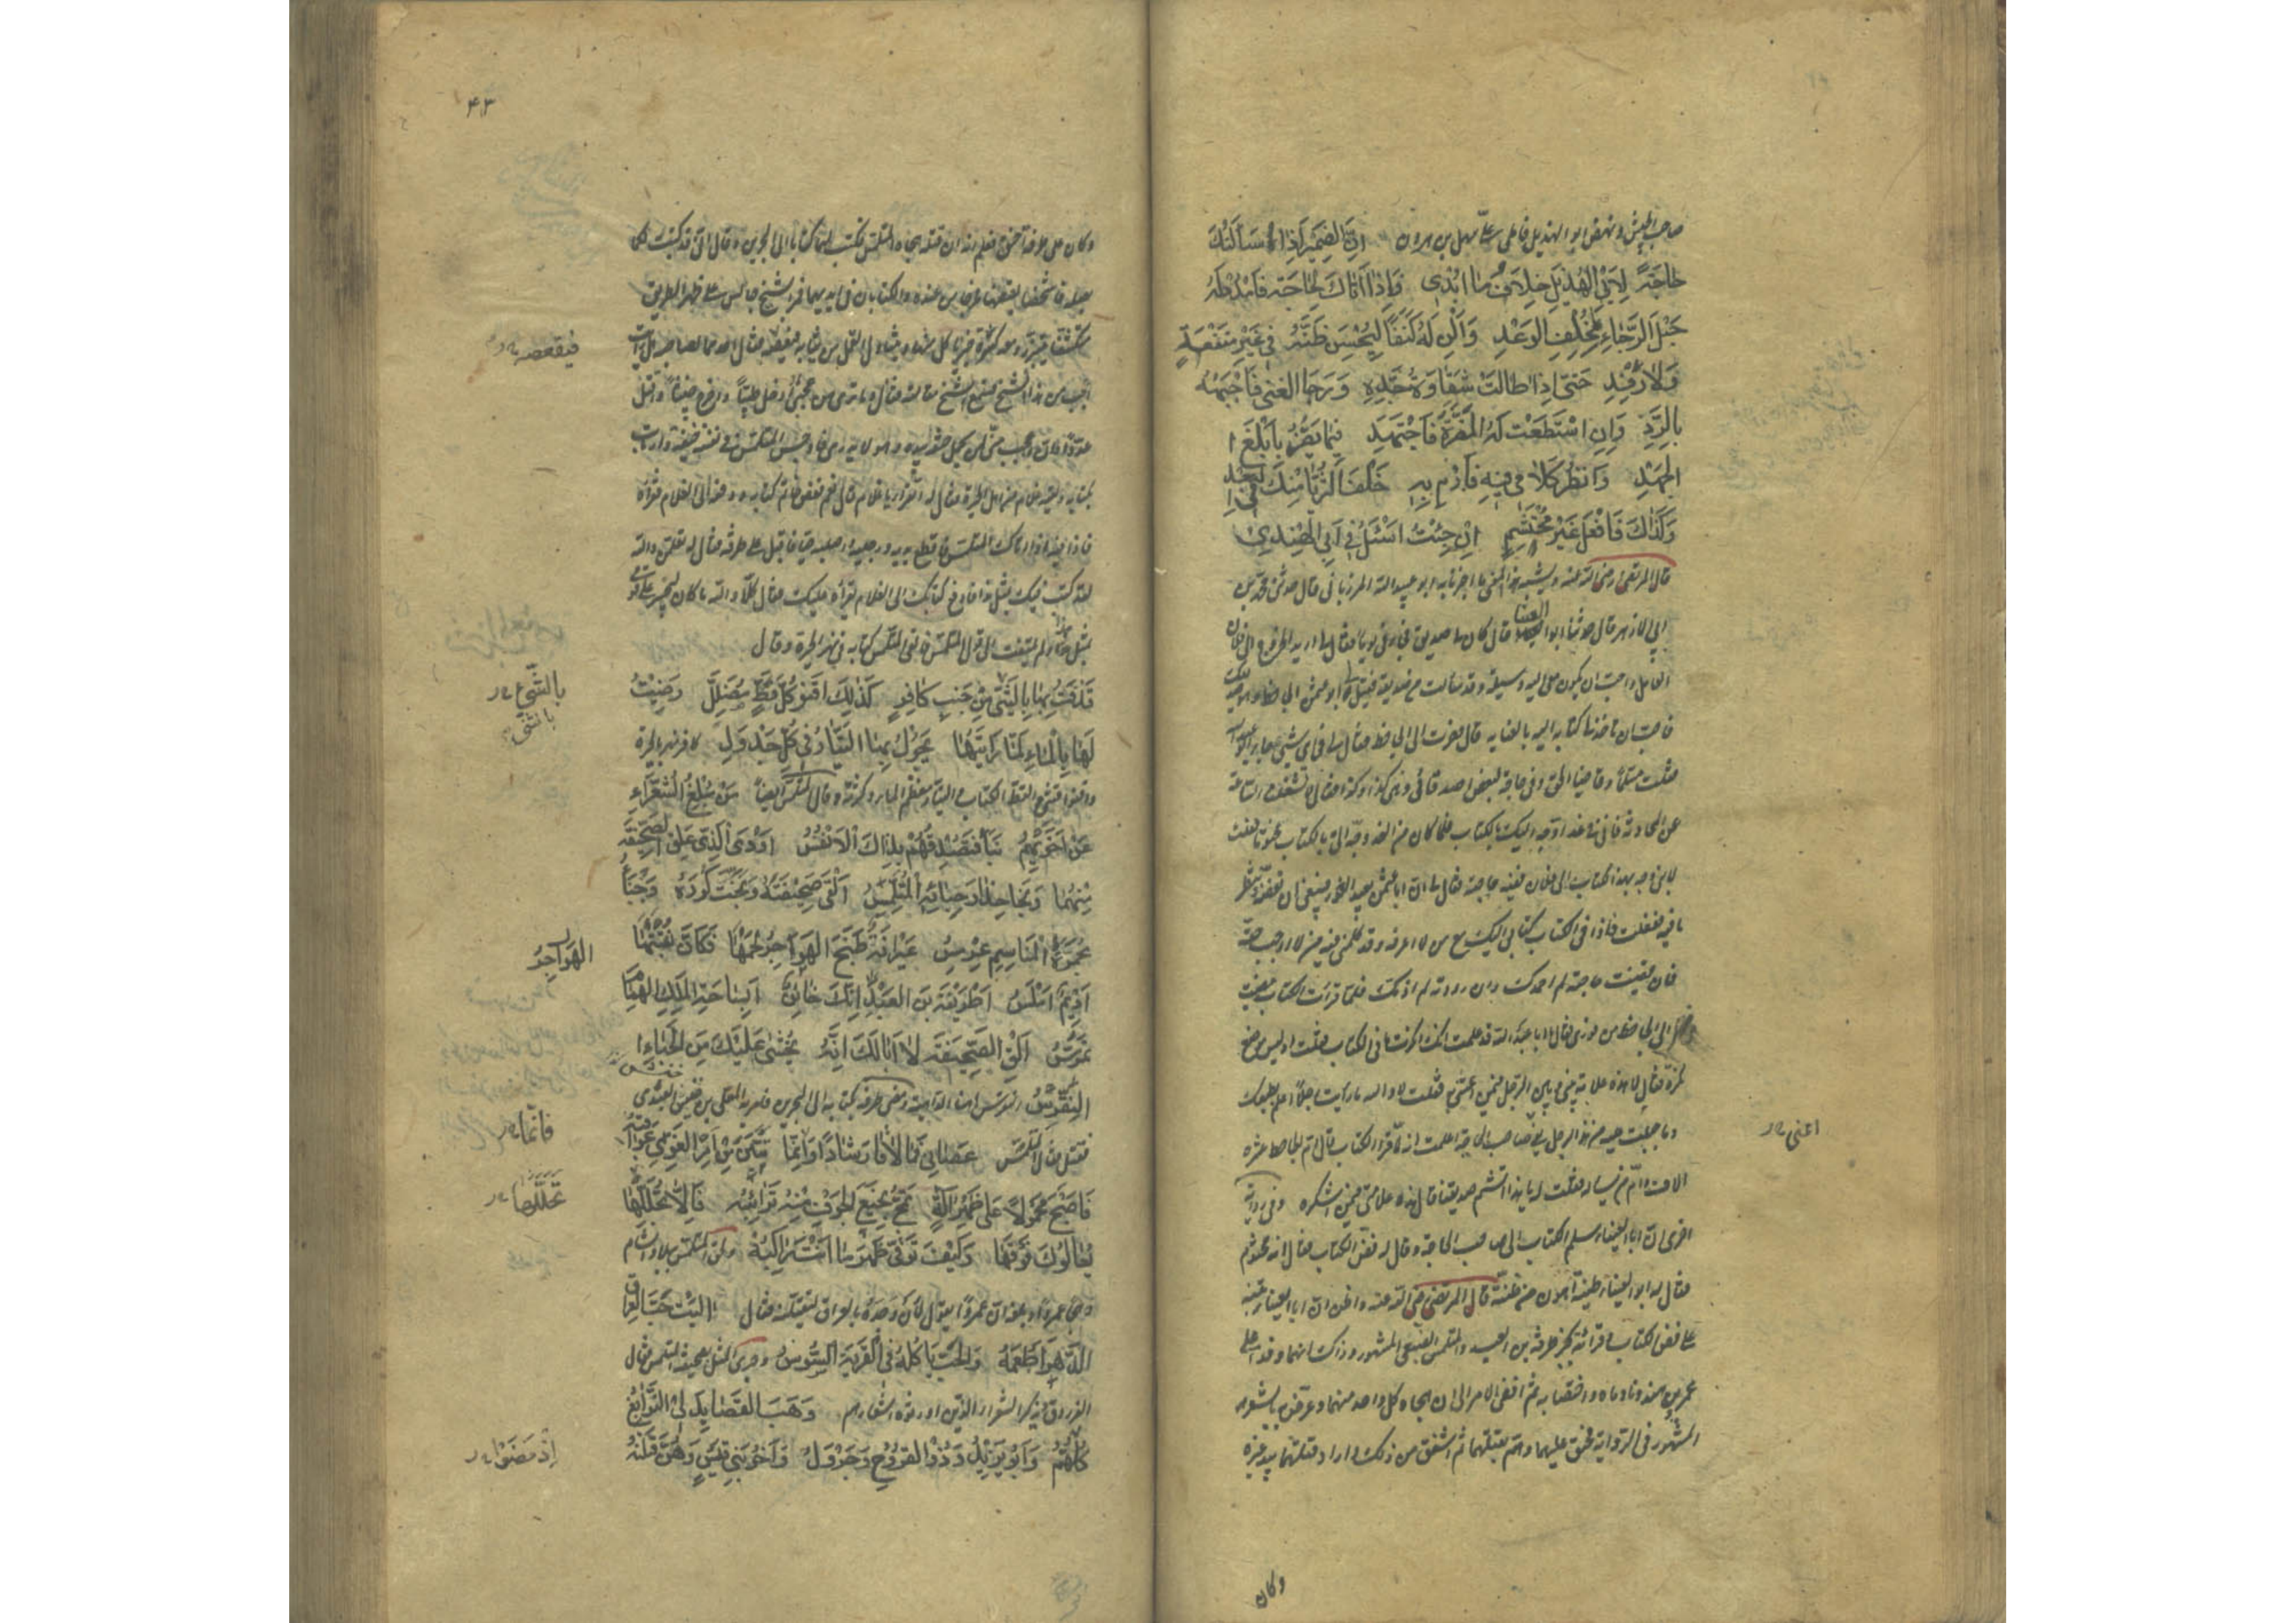 صاحب الجيش ونهض ابو الهذيل فاملى علىّ سهل بن هرون اِنَّ الضَمِيرَ اِذا سَاَلتُكَ
حَاجَةً لِاَبِي الهُذَيلِ خِلافُ مَا اُبْدِي وَاِذَا اَتَاكَ لِحَاجَةٍ فَامْدُدْ لَهُ
حَبْلَ الرَّجَاءِ بِمُخْلِفِ الوَعْدِ وَاَلِن لَهُ كَنَفًا لِيُحْسِنَ ظَنَّهُ فِي غَيْرِ مَنْفَعَةٍ
وَلا رِفْدِ حَتَّى اِذَا طَالَتْ شَقَاوَةُ جَدِّهِ وَرَجَا الغِنَى فَاَجْبَهْهُ
بِالرَّدِّ وَاِنِ اسْتَطَعْتَ لَهُ المَضَرَّةَ فَاجْتَهِدْ فِيمَا يَضُرُّ بِاَبْلَغِ ا
لجَهْدِ وَانْظُرْ كَلَامِي فِيهِ فَارْمِ بِهِ خَلْفَ الثُرَيَّا مِنْكَ فِي البُعْدِ
وَكَذَاكَ فَافْعَلْ غَيْرَ مُحْتَشِمٍ اِنْ جِئْتُ اَسْئَلُ فِي اَبِي الهِنْدِي
قال المرتضى رضى الله عنه ويشبه هذا المعنى ما اخبرنا به ابو عبيد الله المرزبانى قال حدثنى محمد بن
ابى الازهر قال حدثنا ابو العينا قال كان لى صديق فجاءنى يوما فقال لى اريد الخروج الى فلان
العامل واحببت ان يكون معى اليه وسيلة وقد سالت من صديقه فقيل لى ابو عثمن الجاحظ وهو صديقك
فاحب ان تاخذ لى كتابه اليه بالعناية قال فصرت الى الجاحظ فقال لى فى اى شىء جاء ابو عبد الله
فقلت مسلما وقاضيا للحق وفى حاجة لبعض اصدقائى وهى كذا وكذا فقال لا تشغلنا الساعة
عن المحادثة فانى فى غد اوجه اليك بالكتاب فلما كان من الغد وجه الى بالكتاب مختوما فقلت
لابنى وجه بهذا الكتاب الى فلان ففيه حاجته فقال لى ان ابا عثمن بعيد الغور فينبغى ان نفضه وننظر
ما فيه ففعلت فاذا فى الكتاب كتابى اليك مع من لا اعرفه وقد كلمنى فيه من لا اوجب حقه
فان قضيت حاجته لم احمدك وان رددته لم اذمك فلما قرات الكتاب مضيت
الى الجاحظ من فورى فقال يا ابا عبد الله قد علمت انك انكرت ما فى الكتاب فقلت او ليس موضع
نكرة فقال لا هذه علامة بينى وبين الرجل فيمن اعتنى به فقلت لا والله ما رايت رجلا اعلم بطبعك
وما جبلت عليه من هذا الرجل يعنى صاحب الحاجة اعلمت انه لما قرا الكتاب قال ام الجاحظ عشرة
الاف وام من يساله فقلت له يا هذا تشتم صديقنا قال هذه علامتى فيمن اشكره وفى رواية
اخرى ان ابا العيناء سلم الكتاب الى صاحب الحاجة وقال له فض الكتاب فقال انه مختوم
فقال له ابو العيناء طينة اهون من ظنة قال المرتضى رضى الله عنه واظن ان ابا العيناء تنبه
على فض الكتاب وقرائته بخبر طرفة بن العبد والمتلمس الضبعى المشهور وذاك انهما وفدا على
عمرو بن هند ونادماه واختصا به ثم افضى الامر الى ان هجاه كل واحد منهما وعرض به بالشعر
المشهور فى الرواية فحنق عليهما وهم بقتلهما ثم اشفق من ذلك واراد قتلهما بيد غيره
اعنى
وكان
٤٣
وكان على طرفة احنق فعلم انه ان قتله هجاه المتلمس فكتب لهما كتابا الى البحرين وقال انى قد كتبت لكما
بصلة فاشخصا لقبضها فخرجا من عنده والكتابان فى ايديهما فمرا بشيخ جالس على ظهر الطريق
متكشفا يتبرز ومعه كسرة خبز ياكل منها ويتناول القمل من ثيابه فيقصعه فقال احدهما لصاحبه هل رايت
اعجب من هذا الشيخ فسمع الشيخ مقالته فقال وما ترى من عجبى ادخل طيبا واخرج خبيثا واقتل
عدوا وان اعجب منى لمن يحمل حتفه بيده وهو لا يدرى فاوجس المتلمس فى نفسه خيفة وارتاب
بكتابه ولقيه غلام من اهل الحيرة فقال له اتقرا يا غلام قال نعم ففض خاتم كتابه ودفعه الى الغلام فقراه
فاذا فيه اذا اتاك المتلمس فاقطع يديه ورجليه واصلبه حيا فاقبل على طرفة فقال له تعلمن والله
لقد كتب فيك بمثل هذا فادفع كتابك الى الغلام يقراه عليك فقال كلا والله ما كان ليجسر على قومى
بمثل هذا ولم يلتفت الى قول المتلمس فالقى المتلمس كتابه فى نهر الحيرة وقال
قَذَفْتُ بِهَا بِالثِّنْيِ مِنْ جَنْبِ كَافِرٍ كَذَلِكَ اَقْنُو كُلَّ قِطٍّ مُضَلِّلِ رَضِيْتُ
لَهَا بِالمَاءِ لَمَّا رَاَيْتُهَا يَجُوْلُ بِهَا التَّيَّارُ فِي كُلِّ جَدْوَلِ كافر نهر بالحيرة
واقنو اقتنى القط الكتاب والتيار معظم الماء وكثرته وقال المتلمس ايضا مَنْ مُبْلِغُ الشُّعَرَاءِ
عَنْ اَخَوَيْهِمُ نَبَأً فَتَصْدُقَهُمْ بِذَاكَ الاَنْفُسُ اَوْدَى الَّذِي عَلِقَ الصَّحِيفَةَ
مِنْهُمَا وَنَجَا حِذَارَ حِبَائِهِ المُتَلَمِّسُ اَلْقَى صَحِيفَتَهُ وَنَجَّتْ كُوْرَهُ وَجْنَاءُ
مُجْمَرَةُ المَنَاسِمِ عِرْمِسُ عَيْرَانَةٌ طَبَخَ الهَوَاجِرُ لَحْمَهَا فَكَانَ نُقْبَتُهَا
اَدِيْمٌ اَمْلَسُ اَطُرَيْفَةُ بنَ العَبْدِ اِنَّكَ خَائِنٌ اَبِسَاحَةِ المَلِكِ الهُمَامِ
تَمَرَّسُ اَلْقِ الصَّحِيفَةَ لا اَبَا لَكَ اِنَّهُ يُخْشَى عَلَيْكَ مِنَ الحِبَاءِ ا
لنِّقْرِسُ النقرس هاهنا الداهية ومضى طرفة بكتابه الى البحرين فامر به المعلى بن حنش العبدى
فقتل فقال المتلمس عَصَانِي فَمَا لاقَى رَشَادًا وَاِنَّمَا تَبَيَّنُ مِنْ اَمْرِ الغَوِيِّ عَوَاقِبُهُ
فَاَصْبَحَ مَحْمُولًا عَلَى ظَهْرِ آلَةٍ تَمُجُّ نَجِيعَ الجَوْفِ مِنْهُ تَرَائِبُهُ فَاِلَّا تُجَلِّلْهَا
يُعَالُوكَ فَوْقَهَا وَكَيْفَ تَوَقَّى ظَهْرَ مَا اَنْتَ رَاكِبُهْ ولحق المتلمس ببلاد الشام
وهجا عمرا وبلغه ان عمرا يقول لئن وجده بالعراق ليقتلنه فقال اٰلَيْتَ حَبَّ العِرَاقِ
الدَّهْرَ اَطْعَمُهُ وَالحَبُّ يَاْكُلُهُ فِي القَرْيَةِ السُّوسُ وجرى المثل بصحيفة المتلمس فقال
الفرزدق يذكر الشعراء الذين اورثوه اشعارهم وَهَبَ القَصَايِدَ لِي النَّوَابِغُ
كُلُّهُمْ وَاَبُو يَزِيْدَ وَذُو القُرُوْحِ وَجَرْوَلُ وَاَخُو بَنِي قَيْسٍ وَهُنَّ قَتَلْنَهُ
فيقصعه
بالشىء
بالثنى
الهَوَاجِرُ
فانما
تجللها
اِذْ مَضَوْا